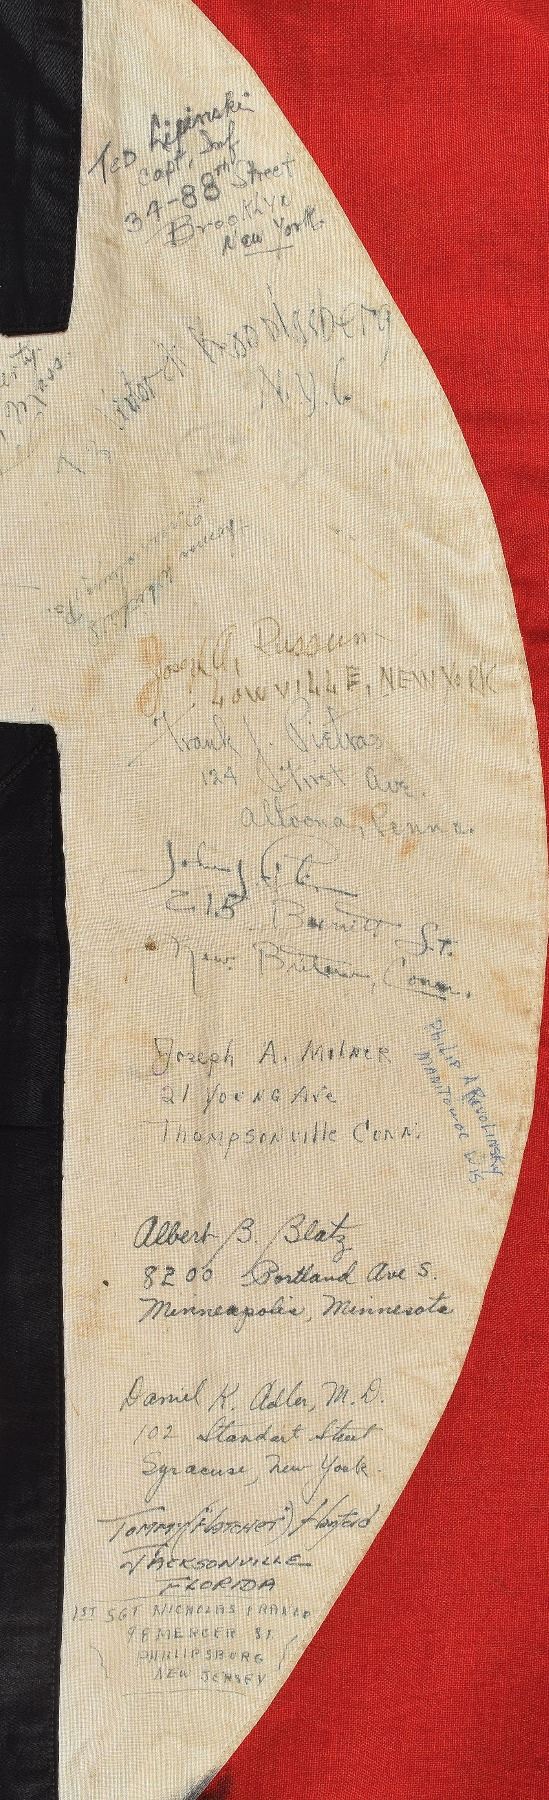 Ted Lipinski
Capt, Inf
34-88th Street
Brooklyn
New York.
N.Y.C.
Joseph A. Russum
LOWVILLE, NEW YORK
Frank J. Pietras
124 First Ave.
Altoona, Penna.
John J.
215 Burritt St.
New Britain, Conn.
Joseph A. Milner
21 Young Ave
Thompsonville Conn.
PHILIP A REVOLINSKY
MANITOWOC WIS
Albert B Blatz
8200 Portland Ave S.
Minneapolis, Minnesota
Daniel K. Adler, M.D.
102 Standart Street
Syracuse, New York.
TOMMY ("HATCHET")
JACKSONVILLE
FLORIDA
1ST SGT NICHOLAS FRANCO
98 MERCER ST.
PHILLIPSBURG
NEW JERSEY